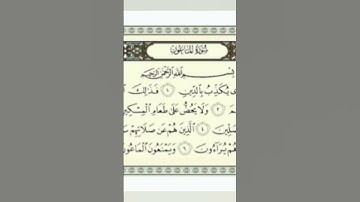 سُورَةُ المَاعُونِ
بِسْمِ اللَّهِ الرَّحْمَٰنِ الرَّحِيمِ
يُكَذِّبُ بِالدِّينِ ١ فَذَٰلِكَ
٢ وَلَا يَحُضُّ عَلَىٰ طَعَامِ الْمِسْكِينِ
٤ الَّذِينَ هُمْ عَن صَلَاتِهِمْ
هُمْ يُرَاءُونَ ٦ وَيَمْنَعُونَ الْمَاعُونَ